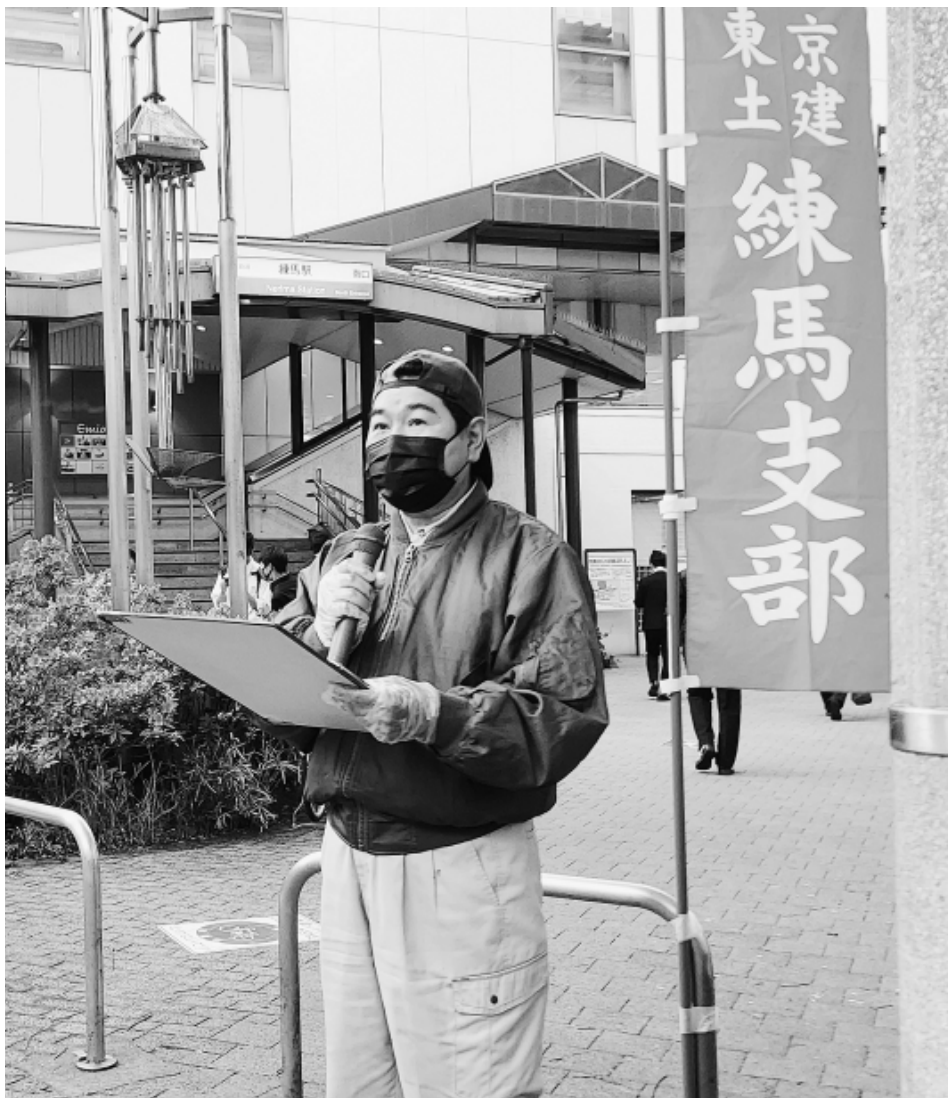 東京
土建
練馬支部
練馬駅
Nerima Station
Emio